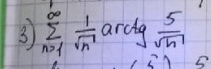 3) \sum_{n=1}^{\infty} \frac{1}{\sqrt{n}} arctg \frac{5}{\sqrt{n}}